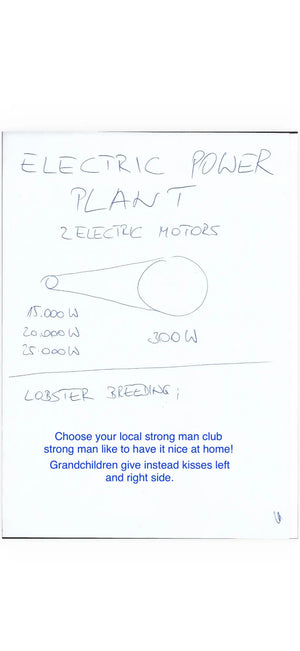 ELECTRIC POWER
PLANT
2 ELECTRIC MOTORS
15.000 W
20.000 W
300 W
25.000 W
LOBSTER BREEDING;
Choose your local strong man club
strong man like to have it nice at home!
Grandchildren give instead kisses left
and right side.